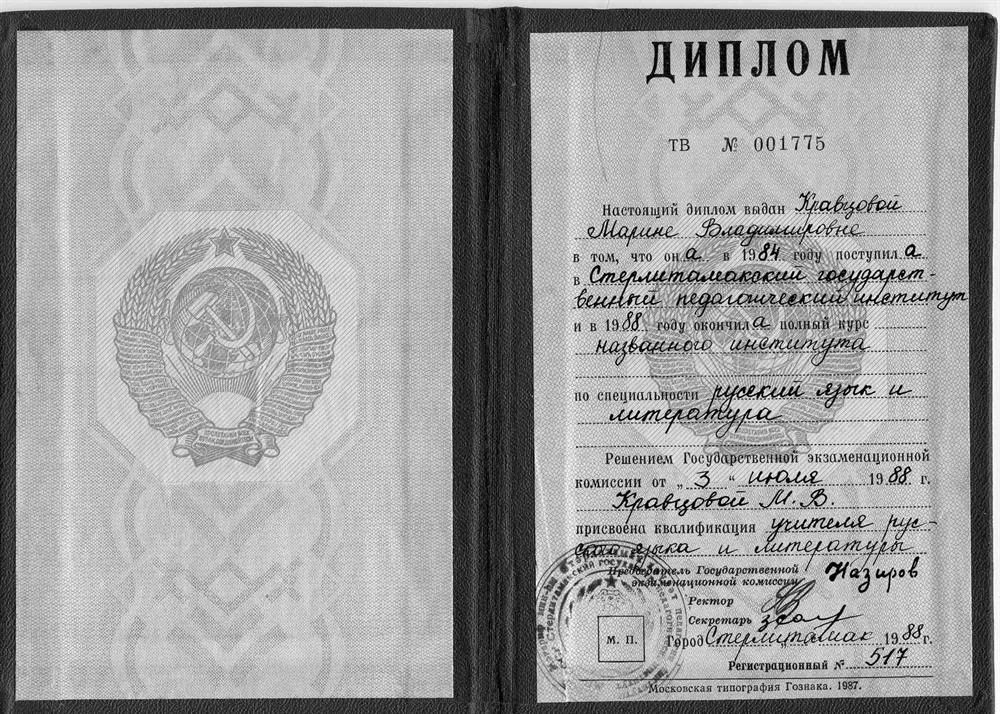 ДИПЛОМ
ТВ № 001775
Настоящий диплом выдан Кравцовой
Марине Владимировне
в том, что она в 1984 году поступила
в Стерлитамакский государст-
венный педагогический институт
и в 1988 году окончила полный курс
названного института
по специальности русский язык и
литература
Решением Государственной экзаменационной
комиссии от „3“ июля 1988 г.
Кравцовой М. В.
присвоена квалификация учителя рус-
ского языка и литературы
Председатель Государственной
экзаменационной комиссии Назиров
Ректор
Секретарь
М. П.
Город Стерлитамак 1988 г.
Регистрационный № 517
Московская типография Гознака. 1987.